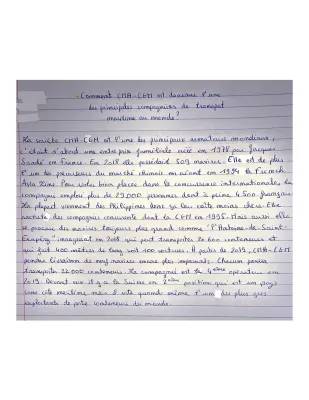 Comment CMA-CGM est devenue l'une
des principales compagnies de transport
maritime au monde ?
La société CMA-CGM est l'une des principaux armateurs mondiaux,
c'était d'abord une entreprise familiale créé en 1978 par Jacques
Saadé en France. En 2018 elle possédait 509 navires. Elle est de plus
l'un des précurseurs du marché chinois en créant en 1994 la French
Asia Line. Pour être bien placée dans la concurrence internationale, la
compagnie emploi plus de 29 000 personnes dont à peine 4 500 français
La plupart viennent des Philippines car ça leur coûte moins cher. Elle
rachète des compagnies concurrente dont la CGM en 1995. Mais aussi elle
se procure des navires toujours plus grands comme "l'Antoine de Saint-
Exupéry" inauguré en 2018 qui peut transporter conteneurs et
qui fait 400 mètres de long soit 100 voitures. A partir de 2019, CMA-CGM
prendra livraison de neuf navires encore plus imposants. Chacun pourra
transporter 22 000 conteneurs. La compagnie est la 4ème opérateur en
2019. Devant eux il y a la Suisse en 2ème position qui est un pays
sans côte maritime mais il reste quand même l'un des plus gros
exploitants de porte conteneurs du monde.